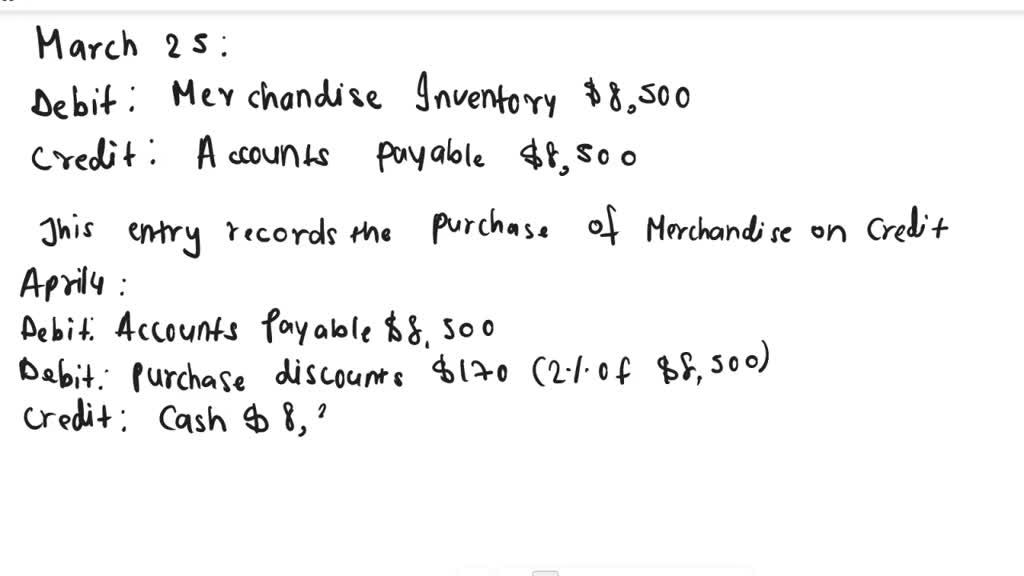 March 25:
Debit: Merchandise Inventory $8,500
Credit: Accounts payable $8,500
This entry records the purchase of Merchandise on Credit
April4:
Debit: Accounts Payable $8,500
Debit: purchase discounts $170 (2% of $8,500)
Credit: Cash $8,